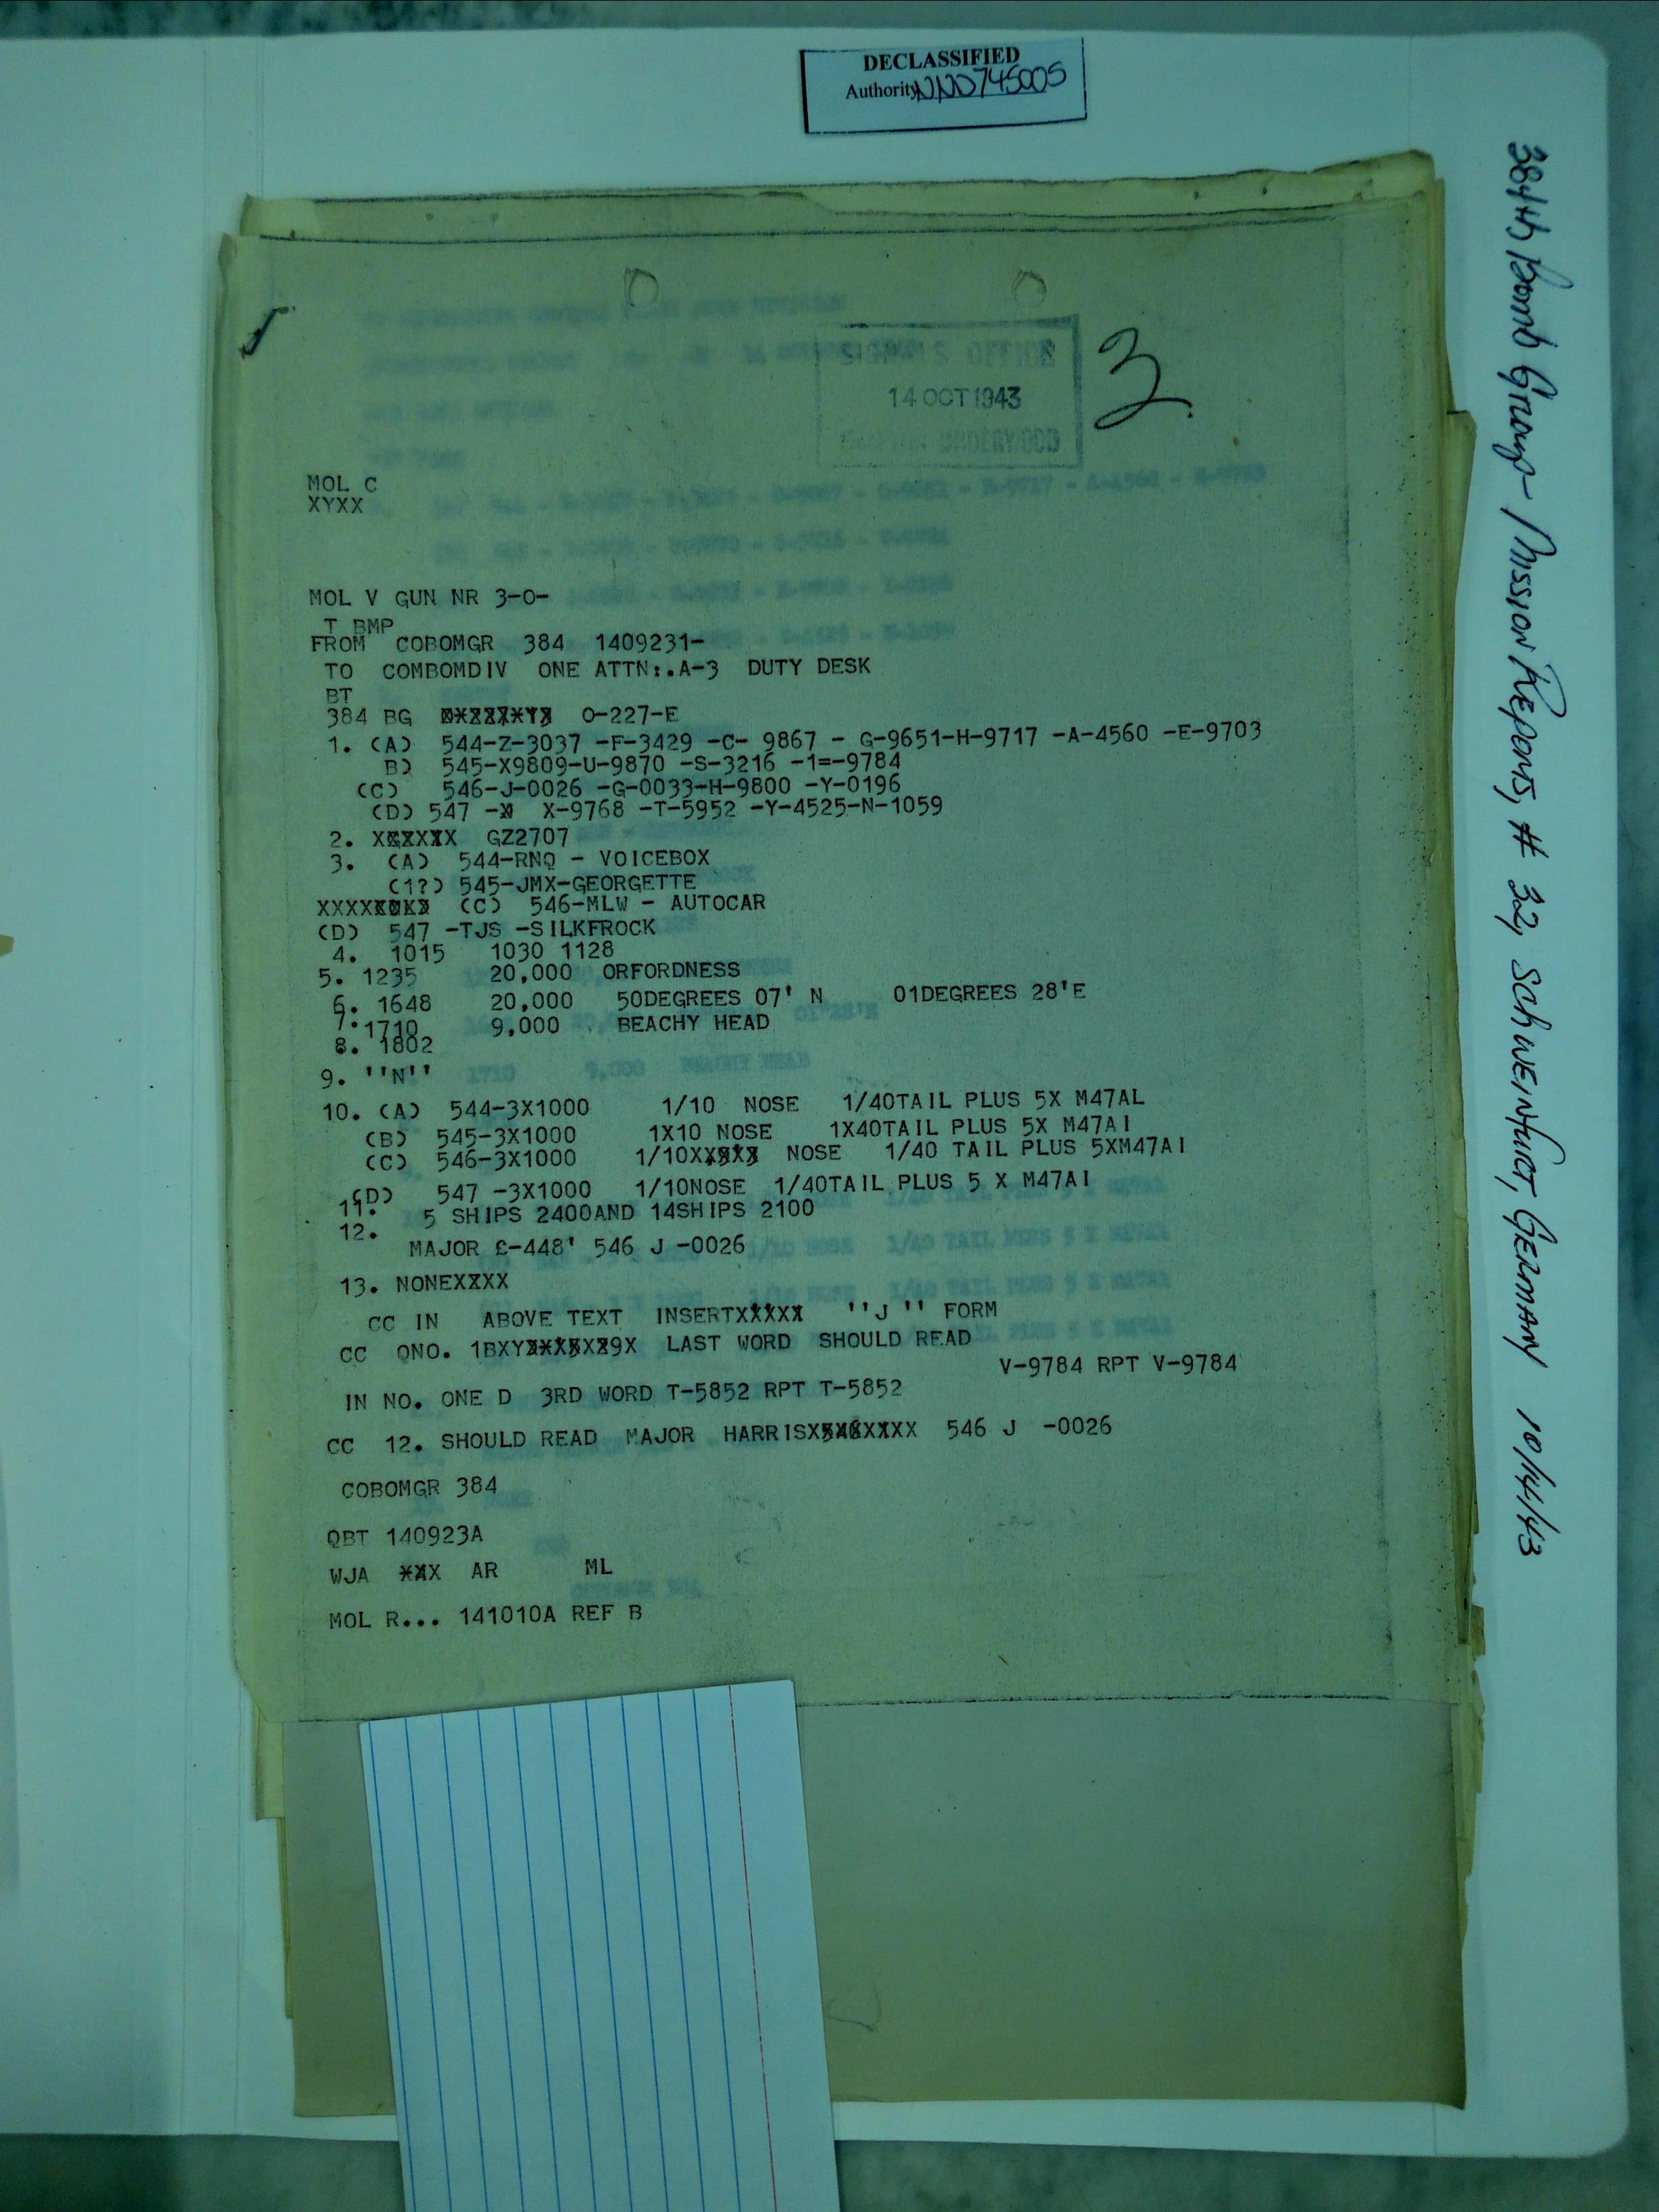 DECLASSIFIED
Authority NND745005
384th Bomb Group - Mission Reports, # 32, Schweinfurt, Germany 10/14/43
SIGNALS OFFICE
14 OCT 1943
UNDERWOOD
3
MOL C
XYXX
MOL V GUN NR 3-0-
T BMP
FROM COBOMGR 384 1409231-
TO COMBOMDIV ONE ATTN:.A-3 DUTY DESK
BT
384 BG O-227-E
1. (A) 544-Z-3037 -F-3429 -C- 9867 - G-9651-H-9717 -A-4560 -E-9703
B) 545-X9809-U-9870 -S-3216 -1=-9784
(C) 546-J-0026 -G-0033-H-9800 -Y-0196
(D) 547 - X-9768 -T-5952 -Y-4525-N-1059
2. GZ2707
3. (A) 544-RNQ - VOICEBOX
(1?) 545-JMX-GEORGETTE
(C) 546-MLW - AUTOCAR
(D) 547 -TJS -SILKFROCK
4. 1015 1030 1128
5. 1235 20,000 ORFORDNESS
6. 1648 20,000 50DEGREES 07' N 01DEGREES 28'E
7.1710 9,000 BEACHY HEAD
8. 1802
9. ''N''
10. (A) 544-3X1000 1/10 NOSE 1/40TAIL PLUS 5X M47AL
(B) 545-3X1000 1X10 NOSE 1X40TAIL PLUS 5X M47AI
(C) 546-3X1000 1/10 NOSE 1/40 TAIL PLUS 5XM47AI
(D) 547 -3X1000 1/10NOSE 1/40TAIL PLUS 5 X M47AI
11. 5 SHIPS 2400AND 14SHIPS 2100
12.
MAJOR £-448' 546 J -0026
13. NONEXXXX
CC IN ABOVE TEXT INSERTXXXXX ''J '' FORM
CC QNO. 1B LAST WORD SHOULD READ
V-9784 RPT V-9784
IN NO. ONE D 3RD WORD T-5852 RPT T-5852
CC 12. SHOULD READ MAJOR HARRIS 546 J -0026
COBOMGR 384
QBT 140923A
WJA AR ML
MOL R... 141010A REF B